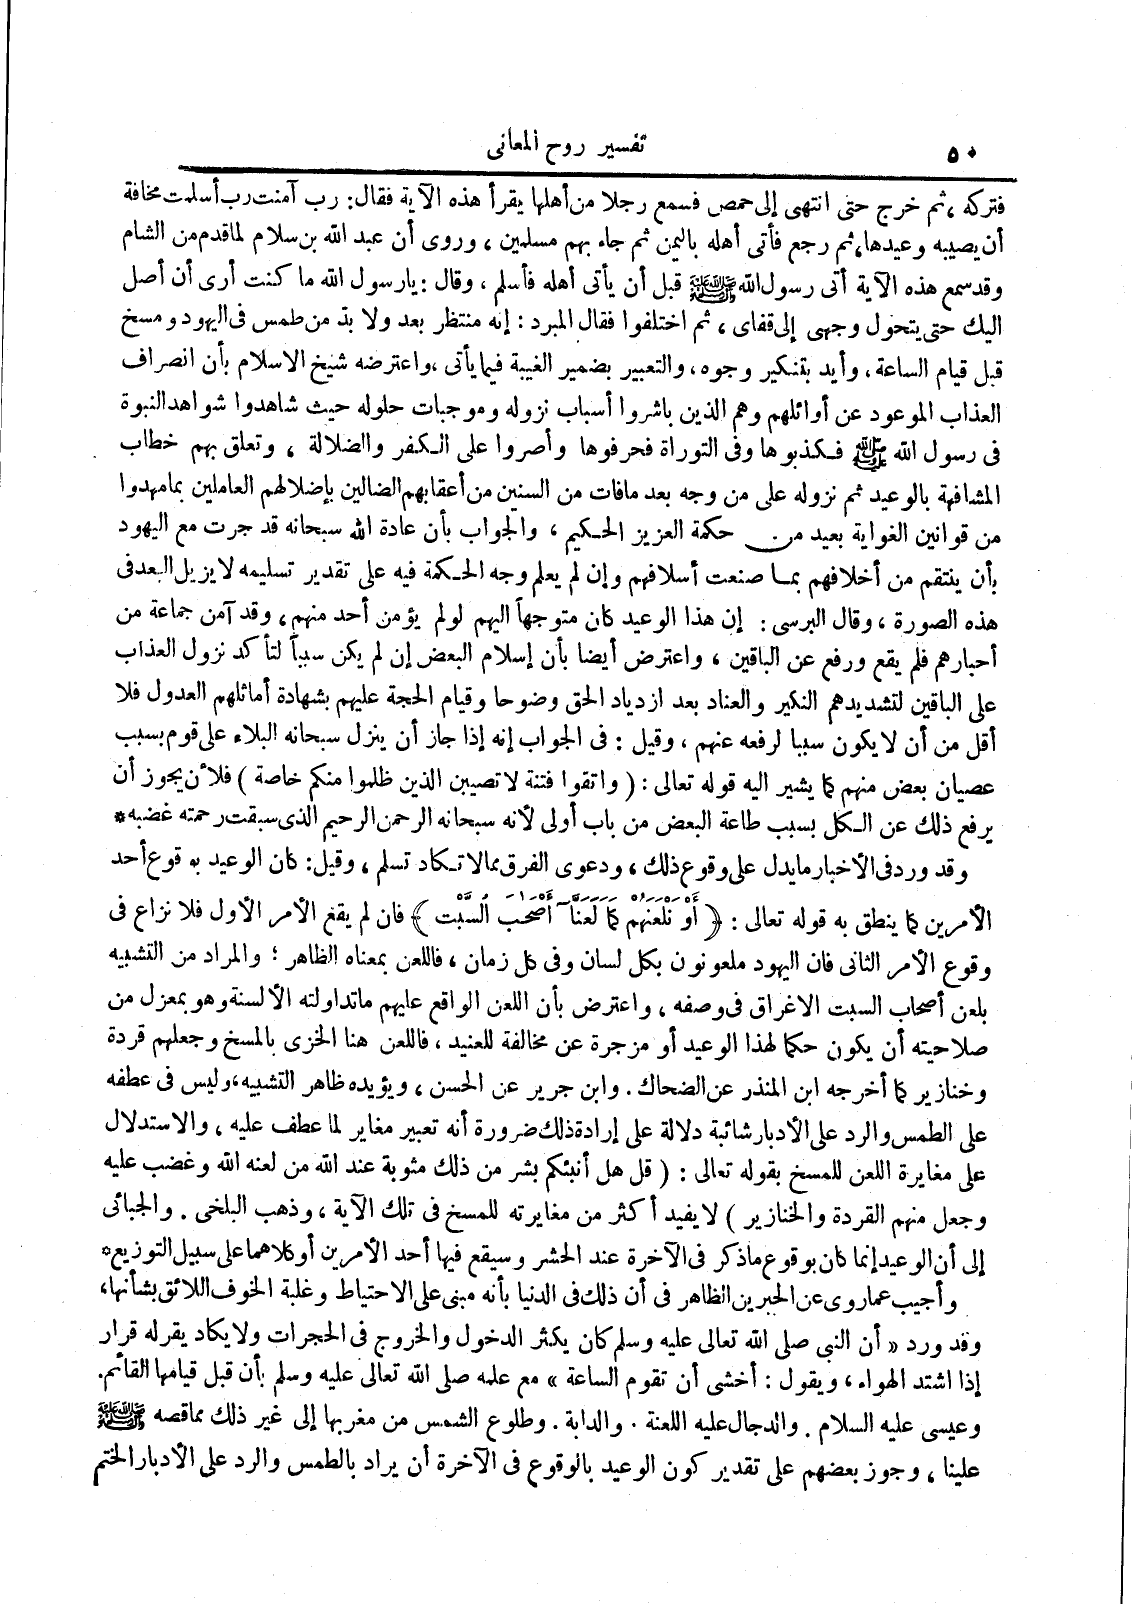 ٥٠ تفسير روح المعانى
فتركه ، ثم خرج حتى انتهى إلى حمص فسمع رجلا من أهلها يقرأ هذه الآية فقال: رب آمنت رب أسلمت مخافة
أن يصيبه وعيدها، ثم رجع فأتى أهله باليمن ثم جاء بهم مسلمين ، وروى أن عبد الله بن سلام لما قدم من الشام
وقد سمع هذه الآية أتى رسول الله ﷺ قبل أن يأتى أهله فأسلم ، وقال : يارسول الله ما كنت أرى أن أصل
اليك حتى يتحول وجهى إلى قفاى ، ثم اختلفوا فقال المبرد : إنه منتظر بعد ولا بد من طمس فى اليهود ومسخ
قبل قيام الساعة ، وأيد بتنكير وجوه ، والتعبير بضمير الغيبة فيما يأتى ، واعترضه شيخ الاسلام بأن انصراف
العذاب الموعود عن أوائلهم وهم الذين باشروا أسباب نزوله وموجبات حلوله حيث شاهدوا شواهد النبوة
فى رسول الله ﷺ فكذبوها وفى التوراة فحرفوها وأصروا على الكفر والضلالة ، وتعلق بهم خطاب
المشافهة بالوعيد ثم نزوله على من وجه بعد مافات من السنين من أعقابهم الضالين بإضلالهم العاملين بما مهدوا
من قوانين الغواية بعيد من حكمة العزيز الحكيم ، والجواب بأن عادة الله سبحانه قد جرت مع اليهود
بأن ينتقم من أخلافهم بما صنعت أسلافهم وإن لم يعلم وجه الحكمة فيه على تقدير تسليمه لا يزيل البعد فى
هذه الصورة ، وقال البرسى : إن هذا الوعيد كان متوجهاً اليهم لو لم يؤمن أحد منهم ، وقد آمن جماعة من
أحبارهم فلم يقع ورفع عن الباقين ، واعترض أيضا بأن إسلام البعض إن لم يكن سبباً لتأكد نزول العذاب
على الباقين لتشديدهم النكير والعناد بعد ازدياد الحق وضوحا وقيام الحجة عليهم بشهادة أماثلهم العدول فلا
أقل من أن لا يكون سببا لرفعه عنهم ، وقيل : فى الجواب إنه إذا جاز أن ينزل سبحانه البلاء على قوم بسبب
عصيان بعض منهم كما يشير اليه قوله تعالى : ( واتقوا فتنة لا تصيبن الذين ظلموا منكم خاصة ) فلأن يجوز أن
يرفع ذلك عن الكل بسبب طاعة البعض من باب أولى لأنه سبحانه الرحمن الرحيم الذى سبقت رحمته غضبه *
وقد ورد فى الأخبار ما يدل على وقوع ذلك ، ودعوى الفرق مما لا تكاد تسلم ، وقيل : كان الوعيد بوقوع أحد
الأمرين كما ينطق به قوله تعالى : ﴿ أَوْ نَلْعَنَهُمْ كَمَا لَعَنَّآ أَصْحَٰبَ السَّبْتِ ﴾ فان لم يقع الأمر الأول فلا نزاع فى
وقوع الأمر الثانى فان اليهود ملعونون بكل لسان وفى كل زمان ، فاللعن بمعناه الظاهر ؛ والمراد من التشبيه
بلعن أصحاب السبت الاغراق فى وصفه ، واعترض بأن اللعن الواقع عليهم ماتداولته الألسنة وهو بمعزل من
صلاحيته أن يكون حكما لهذا الوعيد أو مزجرة عن مخالفة للعنيد ، فاللعن هنا الخزى بالمسخ وجعلهم قردة
وخنازير كما أخرجه ابن المنذر عن الضحاك . وابن جرير عن الحسن ، ويؤيده ظاهر التشبيه ، وليس فى عطفه
على الطمس والرد على الأدبار شائبة دلالة على إرادة ذلك ضرورة أنه تعبير مغاير لما عطف عليه ، والاستدلال
على مغايرة اللعن للمسخ بقوله تعالى : ( قل هل أنبئكم بشر من ذلك مثوبة عند الله من لعنه الله وغضب عليه
وجعل منهم القردة والخنازير ) لا يفيد أكثر من مغايرته للمسخ فى تلك الآية ، وذهب البلخى . والجبائى
إلى أن الوعيد إنما كان بوقوع ما ذكر فى الآخرة عند الحشر وسيقع فيها أحد الأمرين أو كلاهما على سبيل التوزيع *
وأجيب عما روى عن الحبرين الظاهر فى أن ذلك فى الدنيا بأنه مبنى على الاحتياط وغلبة الخوف اللائق بشأنها ،
وقد ورد « أن النبى صلى الله تعالى عليه وسلم كان يكثر الدخول والخروج فى الحجرات ولا يكاد يقر له قرار
إذا اشتد الهواء ، ويقول : أخشى أن تقوم الساعة » مع علمه صلى الله تعالى عليه وسلم بأن قبل قيامها القائم .
وعيسى عليه السلام . والدجال عليه اللعنة . والدابة . وطلوع الشمس من مغربها إلى غير ذلك مما قصه ﷺ
علينا ، وجوز بعضهم على تقدير كون الوعيد بالوقوع فى الآخرة أن يراد بالطمس والرد على الأدبار الختم